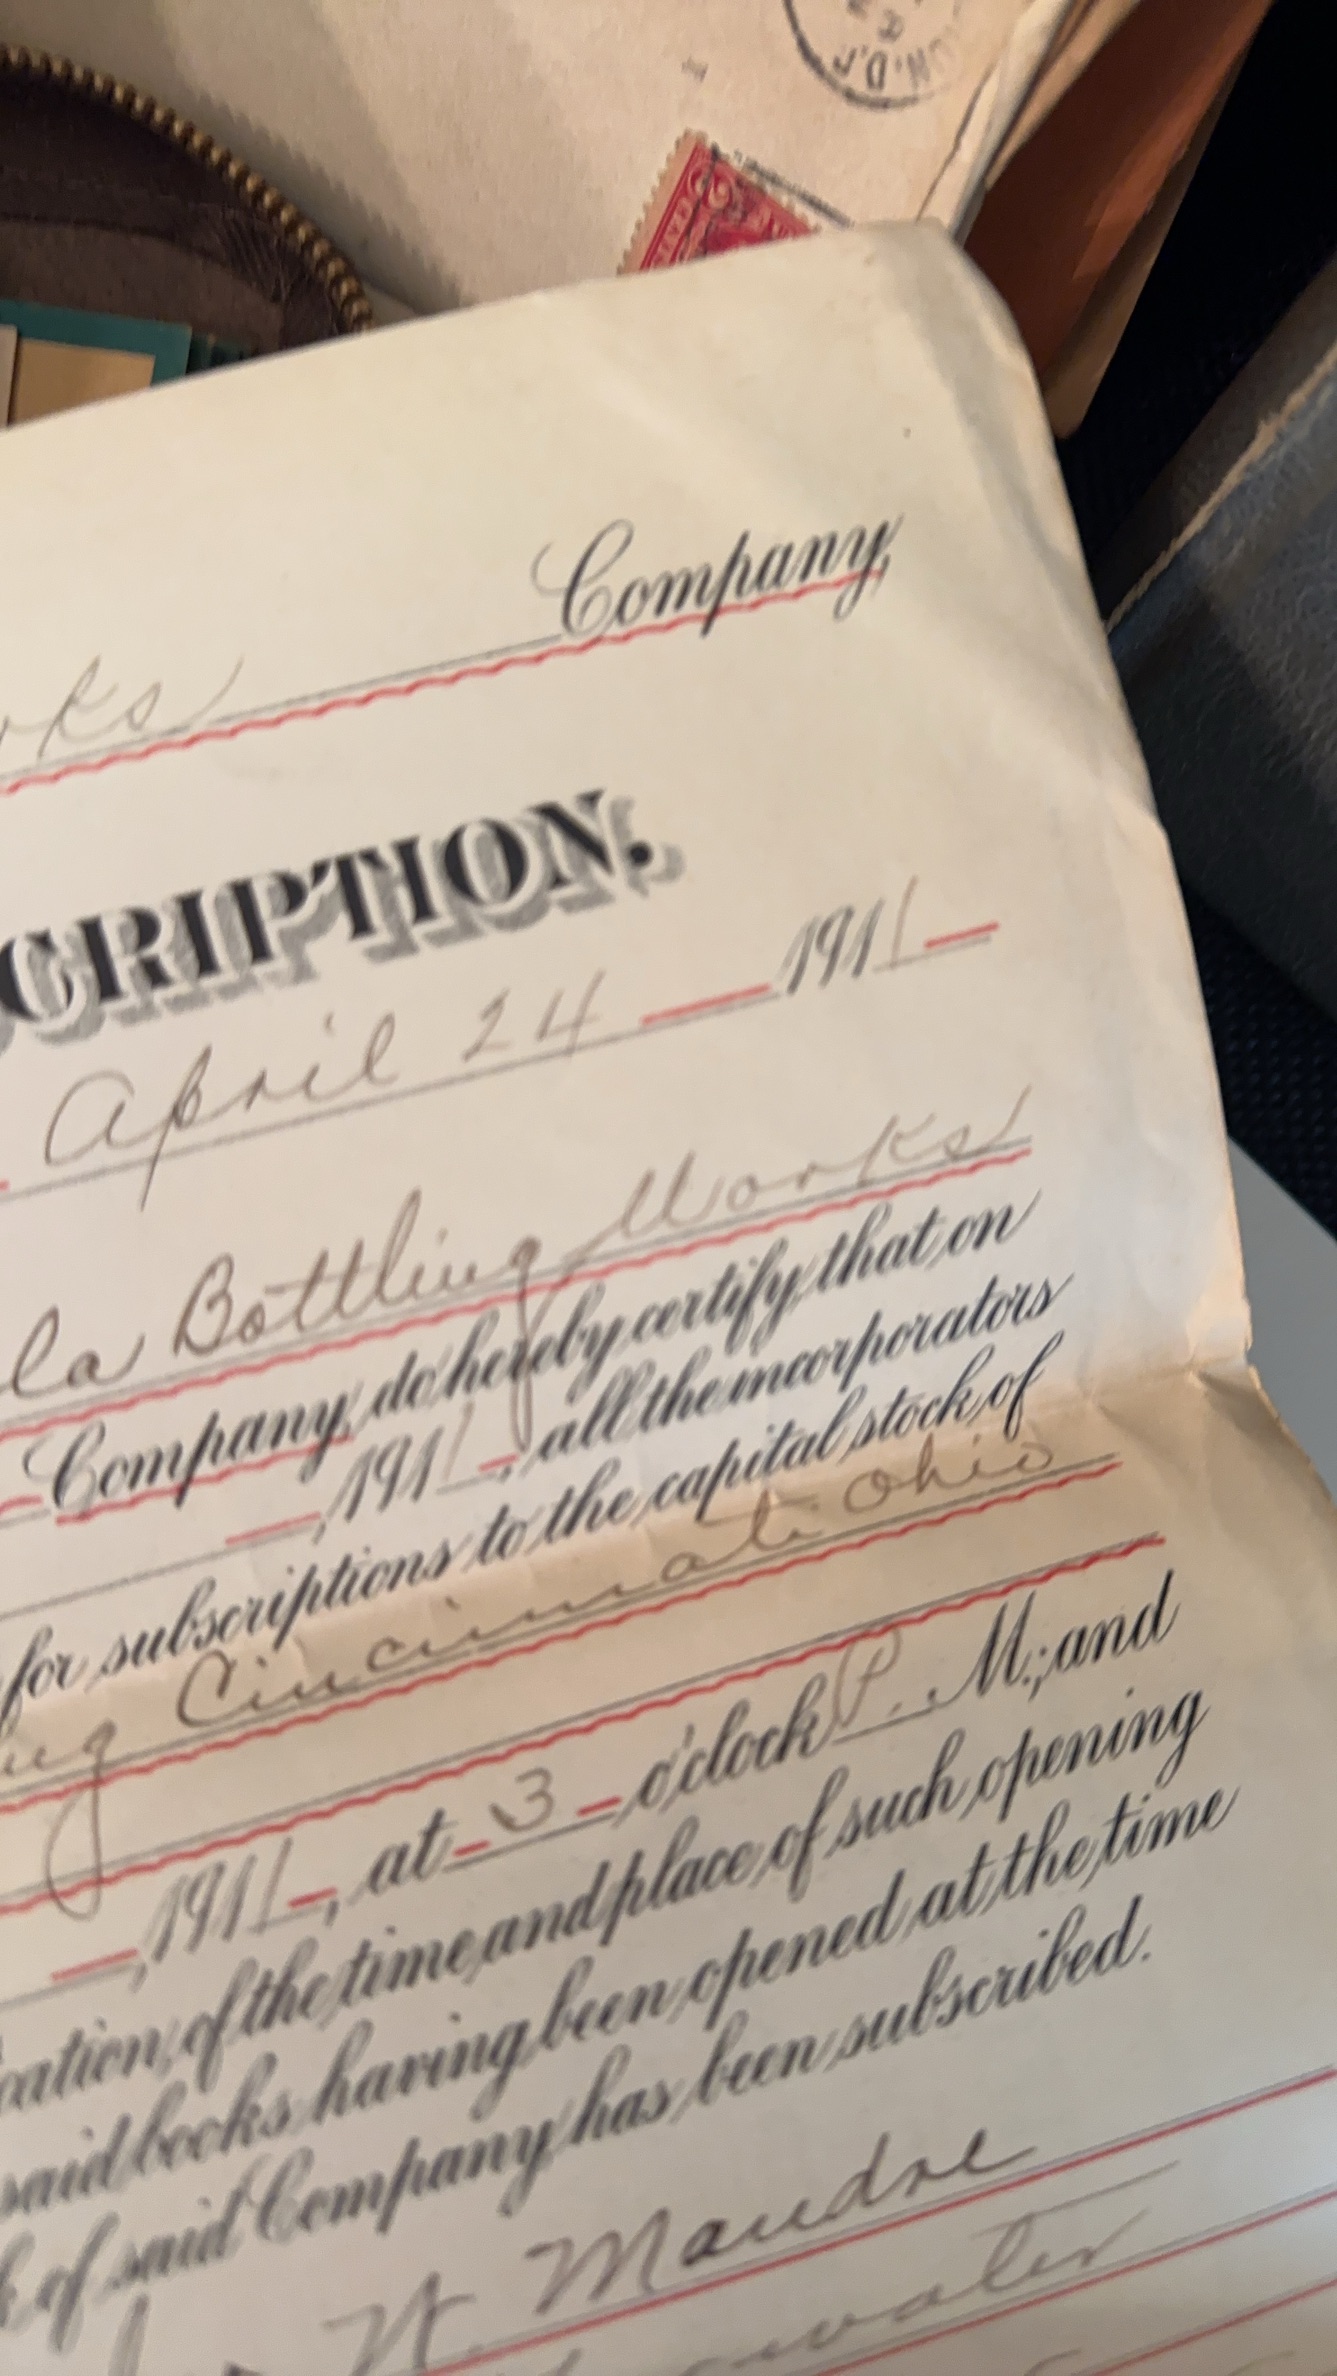 Company,
rks
CRIPTION.
April 24 1911
la Bottling Works
Company, do hereby certify, that on
, 1911, all the incorporators
for subscriptions to the capital stock of
ug Cincinnati Ohio
, 1911, at 3 o'clock P. M.; and
cation, of the time and place of such opening
said books having been opened at the time
k of said Company has been subscribed.
W. Maudre
water